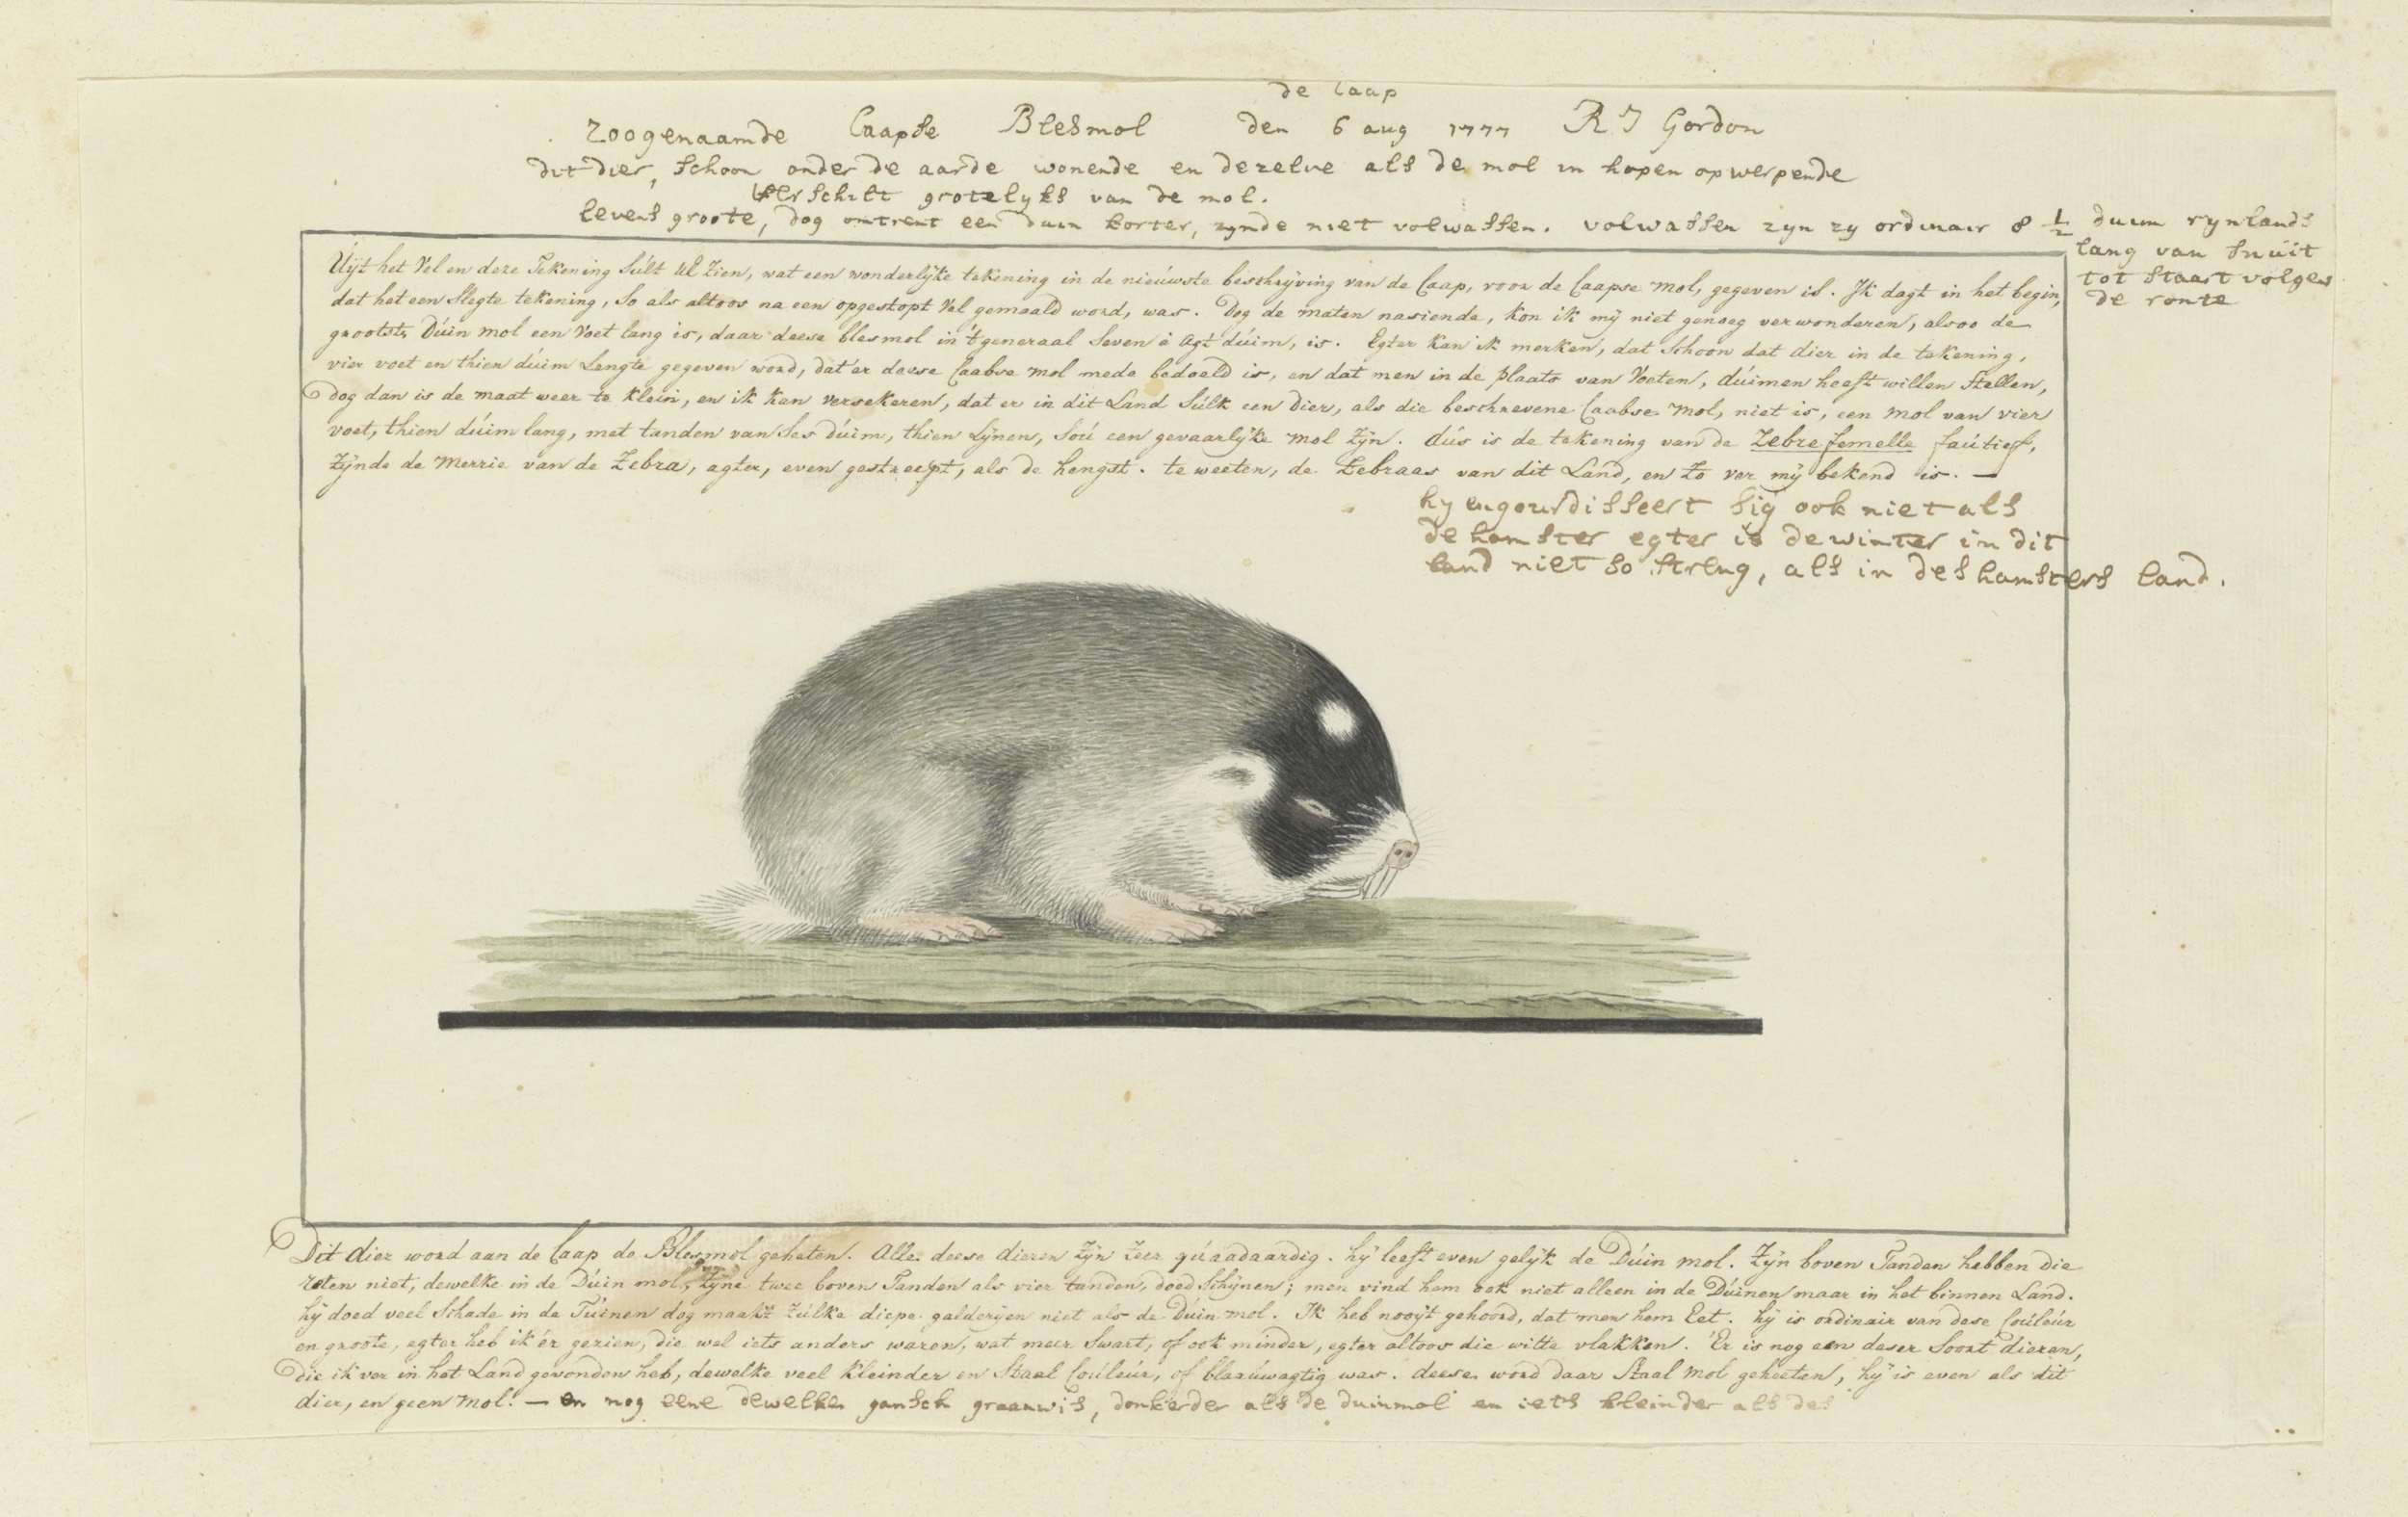 de Caap
Zoogenaamde Caapse Blesmol den 6 aug 1777 R J Gordon
dit dier, schoon onder de aarde wonende en dezelve als de mol in hopen opwerpende
verschilt grotelyks van de mol.
levens groote, dog omtrent een duim korter, zynde niet volwassen. volwassen zyn zy ordinair 8 1/2 duim rynlands
lang van snuit
tot staart volgens
de ronte
Uÿt het Vel en deze Tekening sult UE Zien, wat een wonderlÿke tekening in de nieuwste beschrÿving van de Caap, voor de Caapse mol, gegeven is. Ik dagt in het begin,
dat het een slegte tekening, so als altoos na een opgestopt Vel gemaald word, was. Dog de maten nasiende, kon ik mÿ niet genoeg verwonderen, alsoo de
grootste Duin mol een Voet lang is, daar deese blesmol in 't generaal seven à agt duim, is. Egter kan ik merken, dat schoon dat dier in de tekening,
vier voet en thien duim Lengte gegeven word, dat'er deese Caabse mol mede bedoeld is, en dat men in de plaats van Voeten, duimen heeft willen stellen,
dog dan is de maat weer te klein, en ik kan versekeren, dat er in dit Land sulk een dier, als die beschrevene Caabse mol, niet is, een mol van vier
voet, thien duim lang, met tanden van ses duim, thien Lÿnen, sou een gevaarlÿke mol zÿn. dus is de tekening van de Zebre femelle fautief,
zÿnde de merrie van de Zebra, agter, even gestreept, als de hengst. te weeten, de Zebraas van dit Land, en zo ver mÿ bekend is. —
hy engourdisseert sig ook niet als
de hamster egter is de winter in dit
land niet so streng, als in des hamsters land.
Dit dier word aan de Caap de Blesmol geheten. Alle deese dieren zÿn zeer quaadaardig. hÿ leeft even gelÿk de Duin mol. Zÿn boven Tanden hebben die
reten niet, dewelke in de Duin mol, zÿne twee boven Tanden als vier tanden, doed schÿnen; men vind hem ook niet alleen in de Duinen maar in het binnen Land.
hÿ doed veel schade in de Tuinen dog maakt zulke diepe galderÿen niet als de Duin mol. Ik heb nooÿt gehoord, dat men hem Eet. hÿ is ordinair van dese Couleur
en groote, egter heb ik 'er gezien, die wel iets anders waren, wat meer swart, of ook minder, egter altoos die witte vlakken. 'Er is nog een deser soort dieren,
die ik ver in het Land gevonden heb, dewelke veel kleinder en staal Couleur, of blaauwagtig was. deese word daar staal mol geheeten, hÿ is even als dit
dier, en geen mol. — en nog eene dewelke gansch graauw is, donkerder als de duinmol en iets kleinder als des